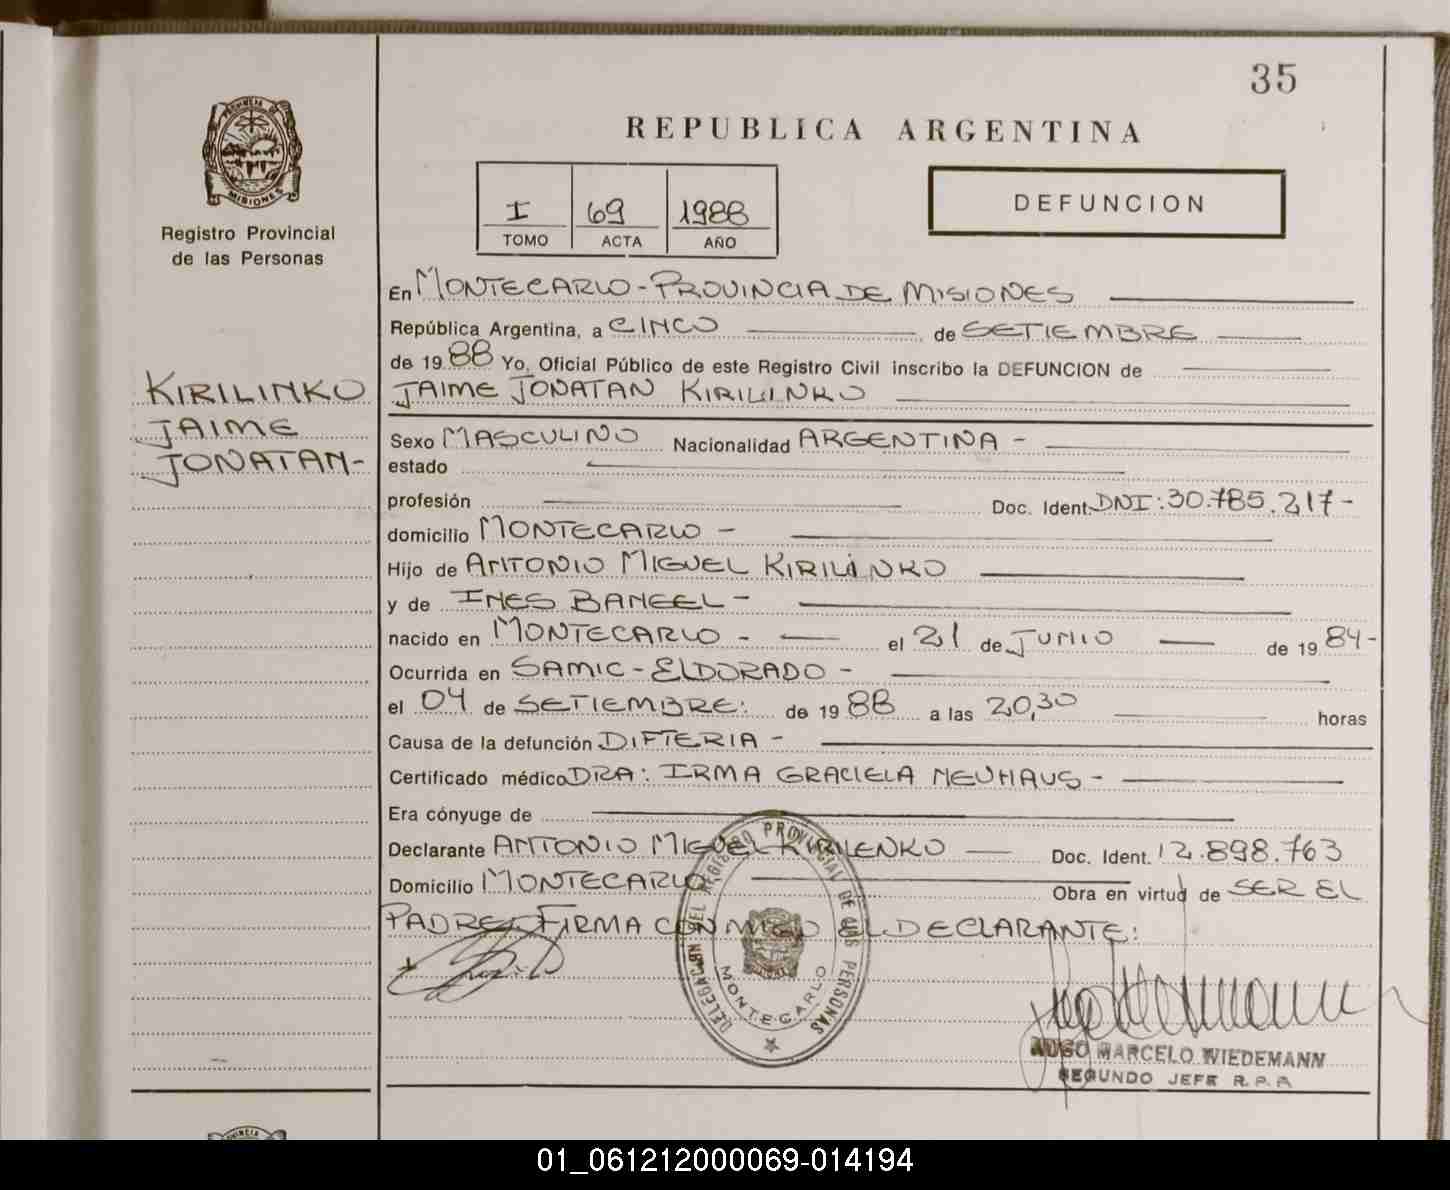 35
REPUBLICA ARGENTINA
PROVINCIA DE
MISIONES
Registro Provincial
de las Personas
I 69 1988
TOMO ACTA AÑO
DEFUNCION
KIRILINKO
JAIME
JONATAN-
En MONTECARLO - PROVINCIA DE MISIONES
República Argentina, a CINCO de SETIEMBRE
de 19 88 Yo, Oficial Público de este Registro Civil inscribo la DEFUNCION de
JAIME JONATAN KIRILINKO
Sexo MASCULINO Nacionalidad ARGENTINA -
estado
profesión Doc. Ident. DNI: 30.785.217-
domicilio MONTECARLO -
Hijo de ANTONIO MIGUEL KIRILINKO
y de INES BANEEL -
nacido en MONTECARLO - el 21 de JUNIO de 19 84-
Ocurrida en SAMIC - ELDORADO -
el 04 de SETIEMBRE: de 19 88 a las 20,30 horas
Causa de la defunción DIFTERIA -
Certificado médico DRA: IRMA GRACIELA NEUHAUS -
Era cónyuge de
Declarante ANTONIO MIGUEL KIRILENKO Doc. Ident. 12.898.763
Domicilio MONTECARLO Obra en virtud de SER EL
PADRE. FIRMA CONMIGO EL DECLARANTE:
DELEGACION DEL REGISTRO PROVINCIAL DE LAS PERSONAS
MONTECARLO
HUGO MARCELO WIEDEMANN
SEGUNDO JEFE R.P.P.
01_061212000069-014194